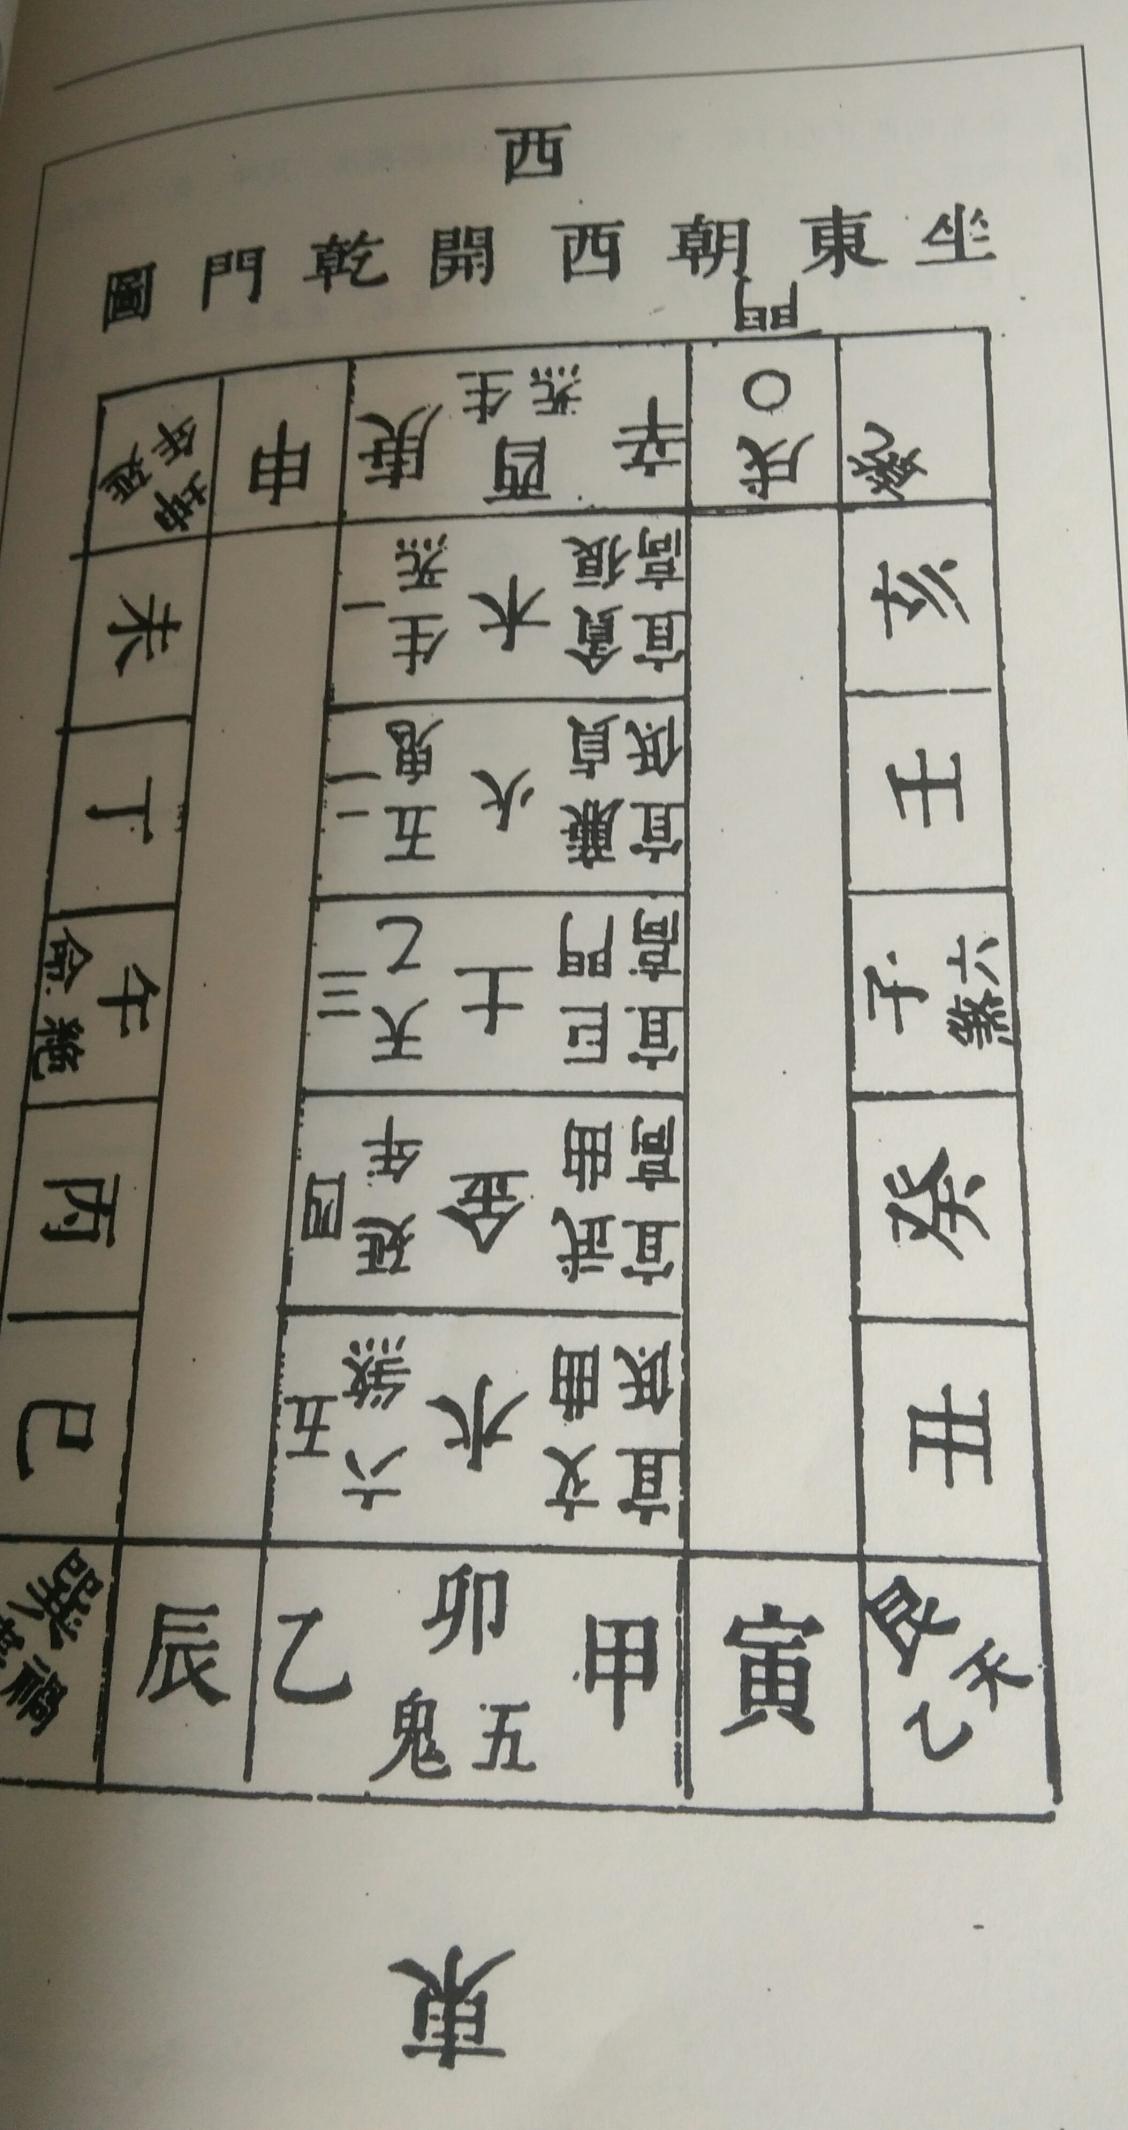 西
坐東朝西開乾門圖
門
乾
○戌
辛酉庚
生炁
申
坤
延年
亥
壬
子
六煞
癸
丑
宜高
貪狼
木
生炁
一
宜低
廉貞
火
五鬼
二
宜高
巨門
土
天乙
三
宜高
武曲
金
延年
四
宜低
文曲
水
六煞
五
未
丁
午
絶命
丙
巳
艮
天乙
寅
甲卯乙
五鬼
辰
巽
禍害
東